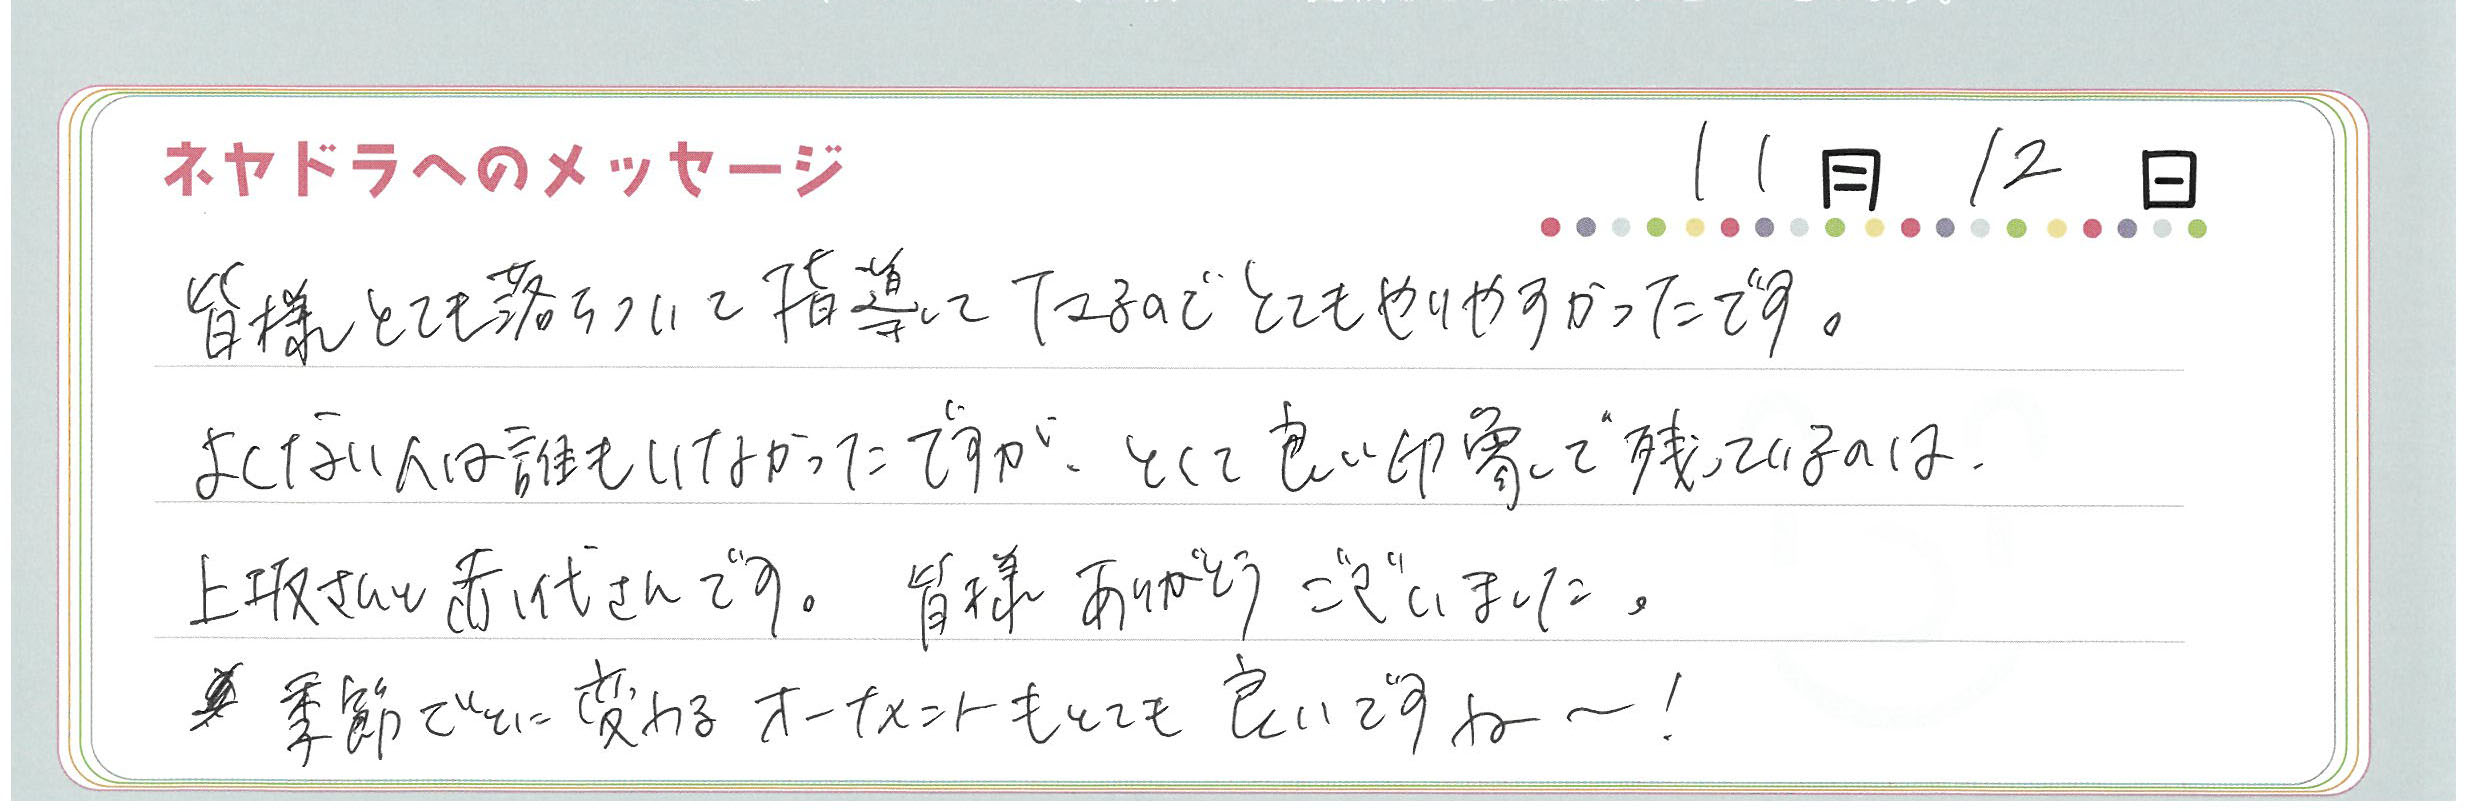 ネヤドラへのメッセージ
11月 12日
皆様とても落ちついて指導して下さるのでとてもやりやすかったです。
よくない人は誰もいなかったですが、とくに良い印象で残っているのは、
上坂さんと赤代さんです。皆様ありがとうございました。
季節ごとに変わるオーナメントもとても良いですね〜!